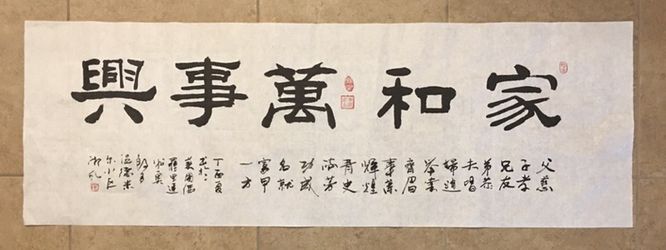 家和萬事興
父慈
子孝
兄友
弟恭
夫唱
婦随
舉案
齊眉
事業
輝煌
青史
流芳
功成
名就
富甲
一方
丁酉夏